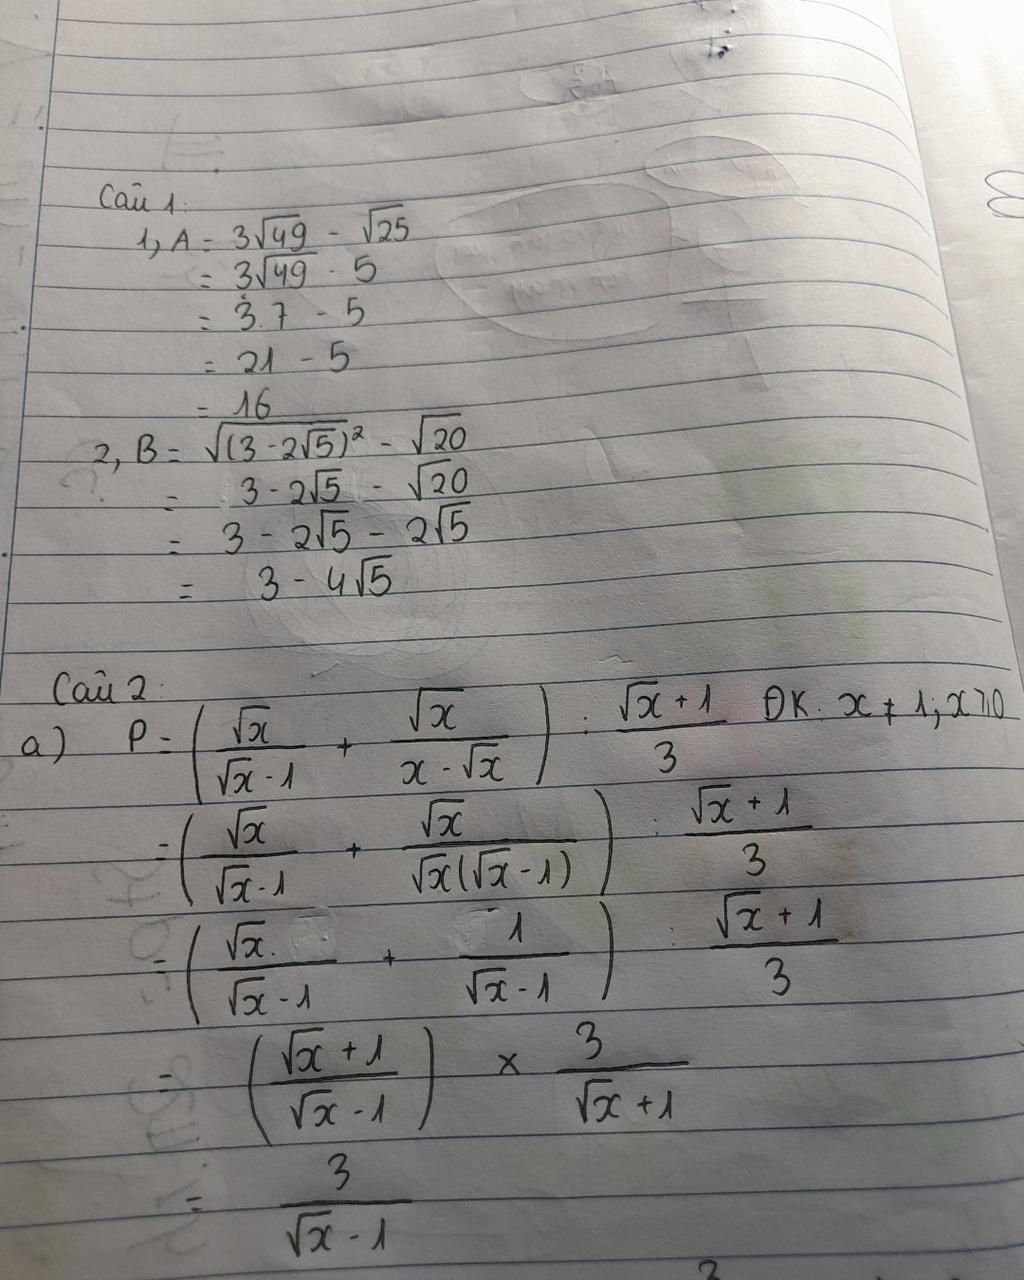 Câu 1:
1, A = 3√49 - √25
= 3√49 - 5
= 3.7 - 5
= 21 - 5
= 16
2, B = √(3 - 2√5)² - √20
= 3 - 2√5 - √20
= 3 - 2√5 - 2√5
= 3 - 4√5
Câu 2:
a) P = (√x / (√x - 1) + √x / (x - √x)) : (√x + 1) / 3 ĐK: x ≠ 1; x > 0
= (√x / (√x - 1) + √x / (√x(√x - 1))) : (√x + 1) / 3
= (√x / (√x - 1) + 1 / (√x - 1)) : (√x + 1) / 3
= ((√x + 1) / (√x - 1)) × 3 / (√x + 1)
= 3 / (√x - 1)